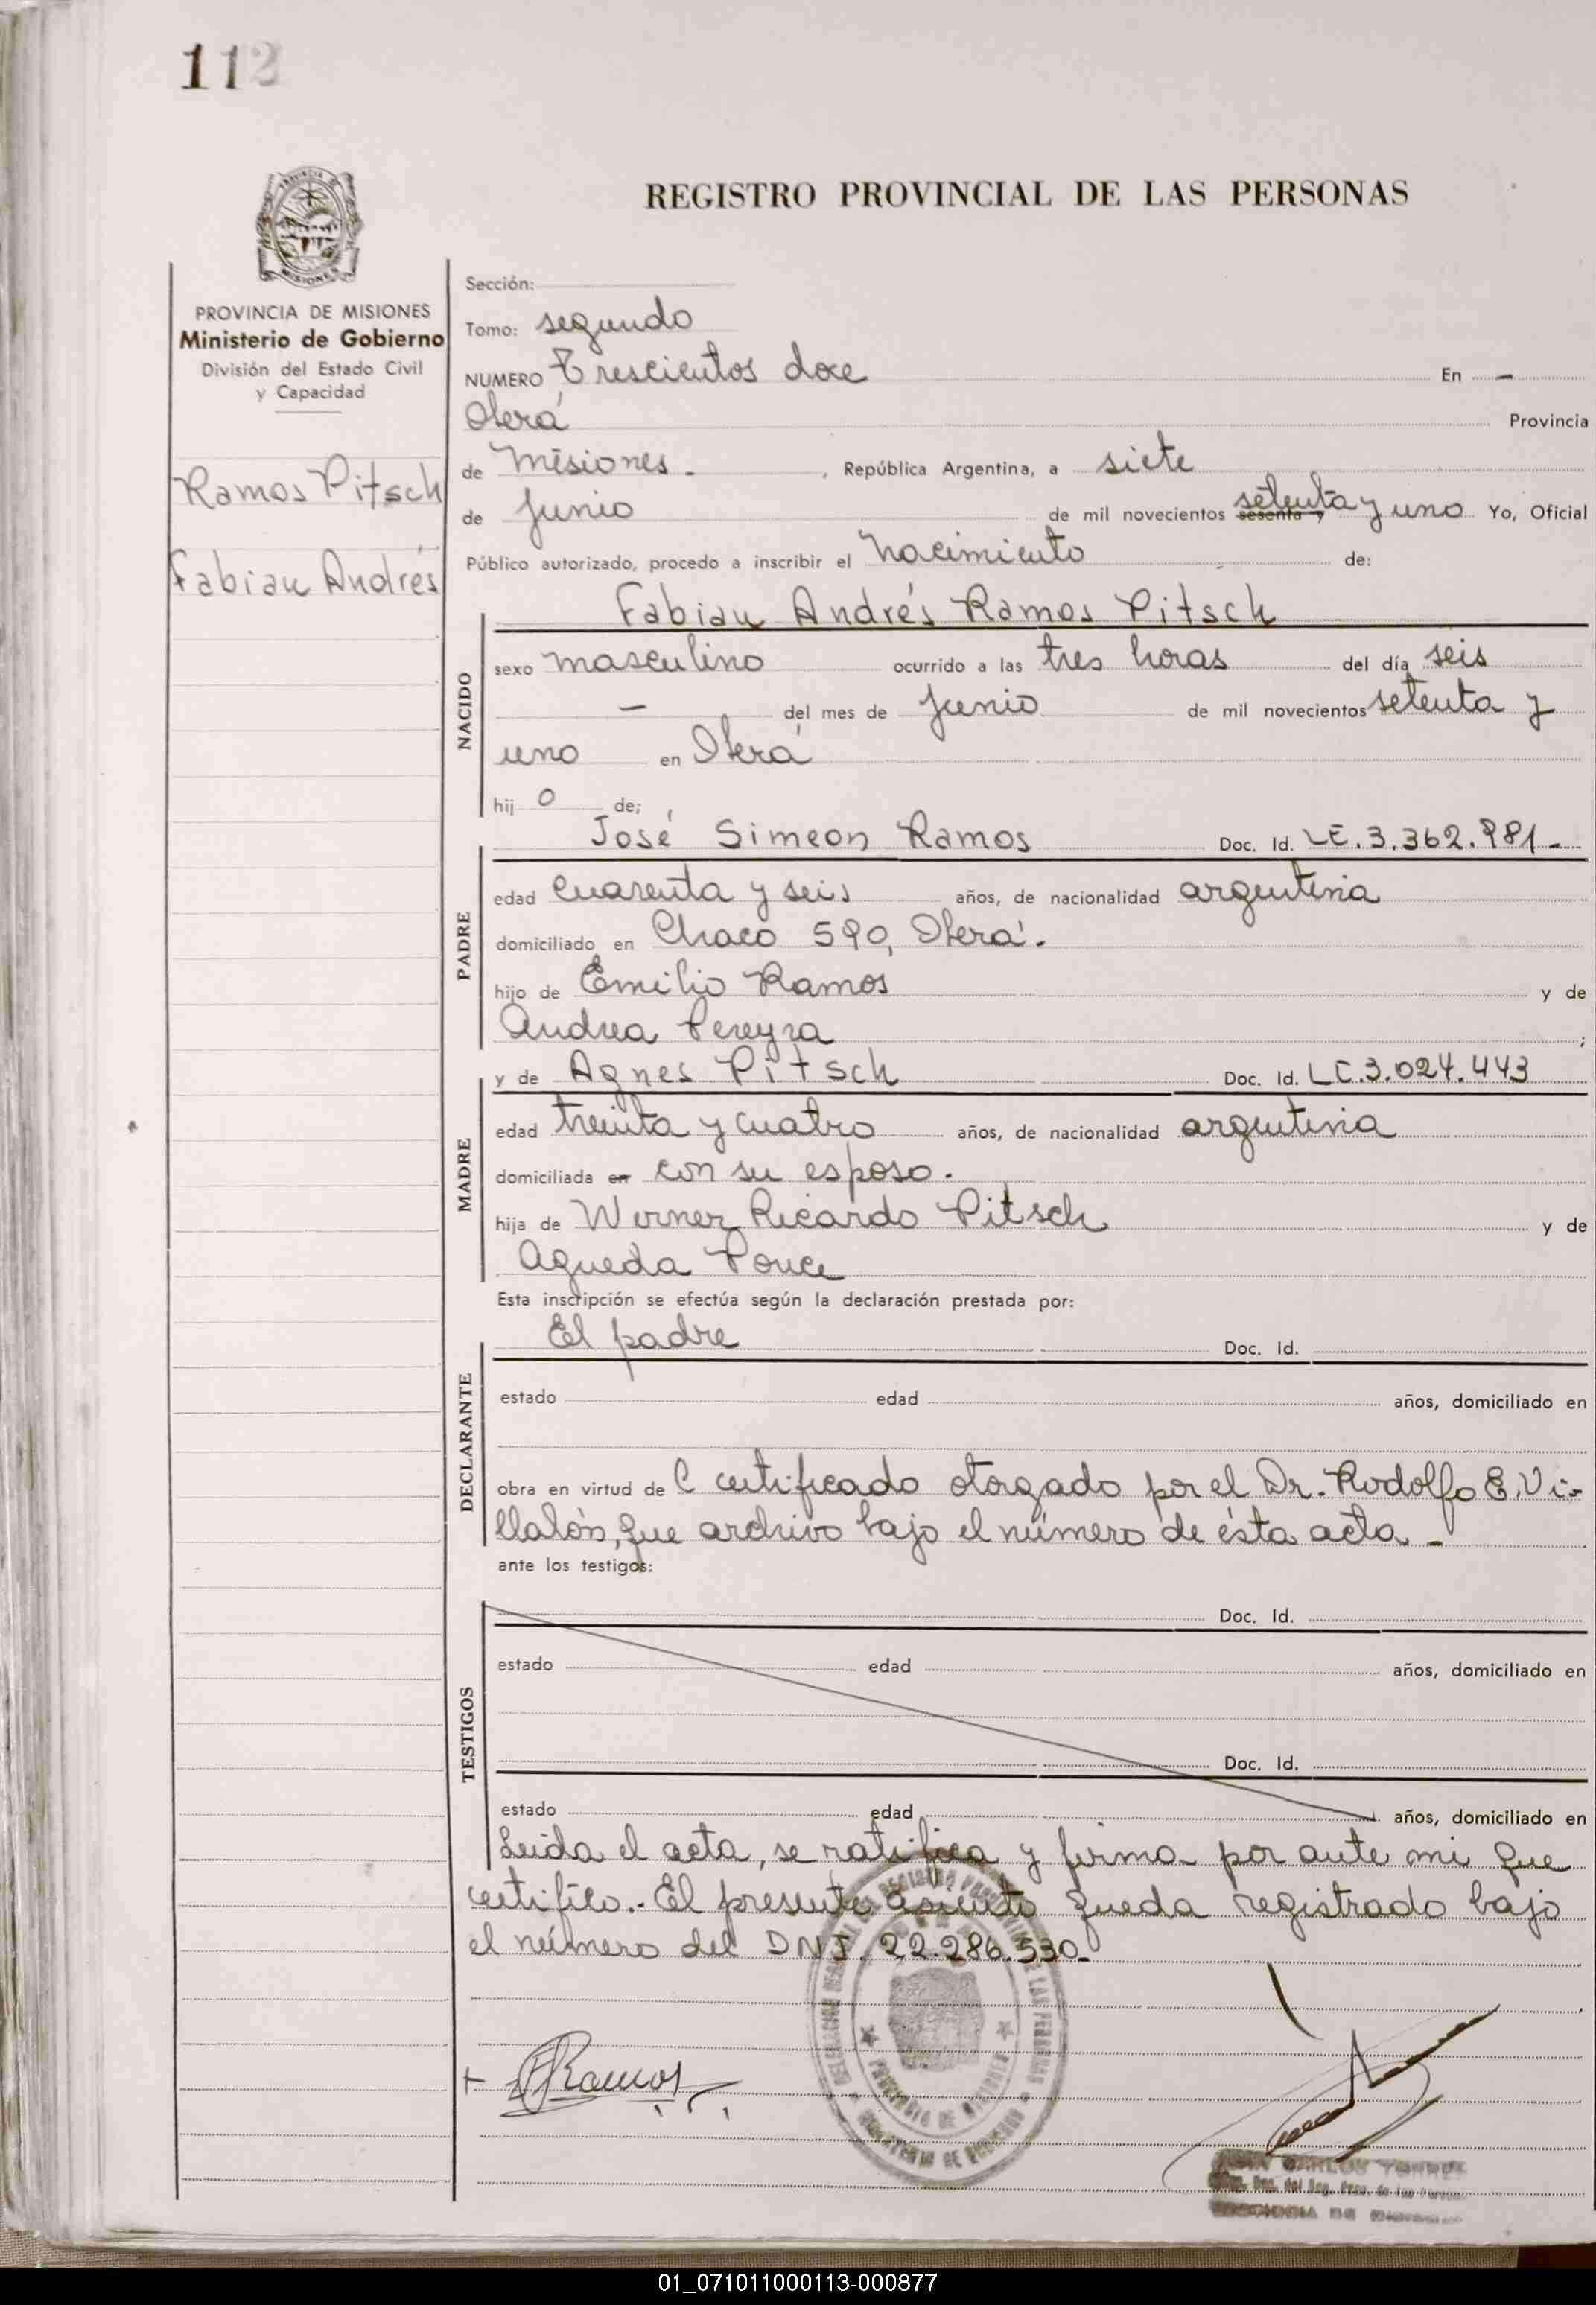 112
REGISTRO PROVINCIAL DE LAS PERSONAS
MISIONES
PROVINCIA DE MISIONES
Ministerio de Gobierno
División del Estado Civil
y Capacidad
Ramos Pitsch
Fabian Andrés
Sección:
Tomo: segundo
NUMERO Trescientos doce En -
Oberá Provincia
de Misiones - , República Argentina, a siete
de Junio de mil novecientos sesenta y setenta y uno Yo, Oficial
Público autorizado, procedo a inscribir el nacimiento de:
Fabian Andrés Ramos Pitsch
NACIDO
sexo masculino ocurrido a las tres horas del día seis
- del mes de Junio de mil novecientos setenta y
uno en Oberá
hij o de;
José Simeon Ramos Doc. Id. LE. 3.362.981-
PADRE
edad cuarenta y seis años, de nacionalidad argentina
domiciliado en Chaco 590, Oberá.
hijo de Emilio Ramos y de
Andrea Pereyra ;
y de Agnes Pitsch Doc. Id. LC.3.024.443
MADRE
edad treinta y cuatro años, de nacionalidad argentina
domiciliada en con su esposo.
hija de Werner Ricardo Pitsch y de
Agueda Ponce
Esta inscripción se efectúa según la declaración prestada por:
El padre Doc. Id.
DECLARANTE
estado edad años, domiciliado en
obra en virtud de C certificado otorgado por el Dr. Rodolfo E. Vi-
llalón, que archivo bajo el número de ésta acta -
ante los testigos:
Doc. Id.
TESTIGOS
estado edad años, domiciliado en
Doc. Id.
estado edad años, domiciliado en
Leida el acta, se ratifica y firma por ante mi que
certifico.- El presente asiento queda registrado bajo
el número del DNI. 22.286.530-
Ramos
PROVINCIA DE MISIONES
JUAN CARLOS
01_071011000113-000877